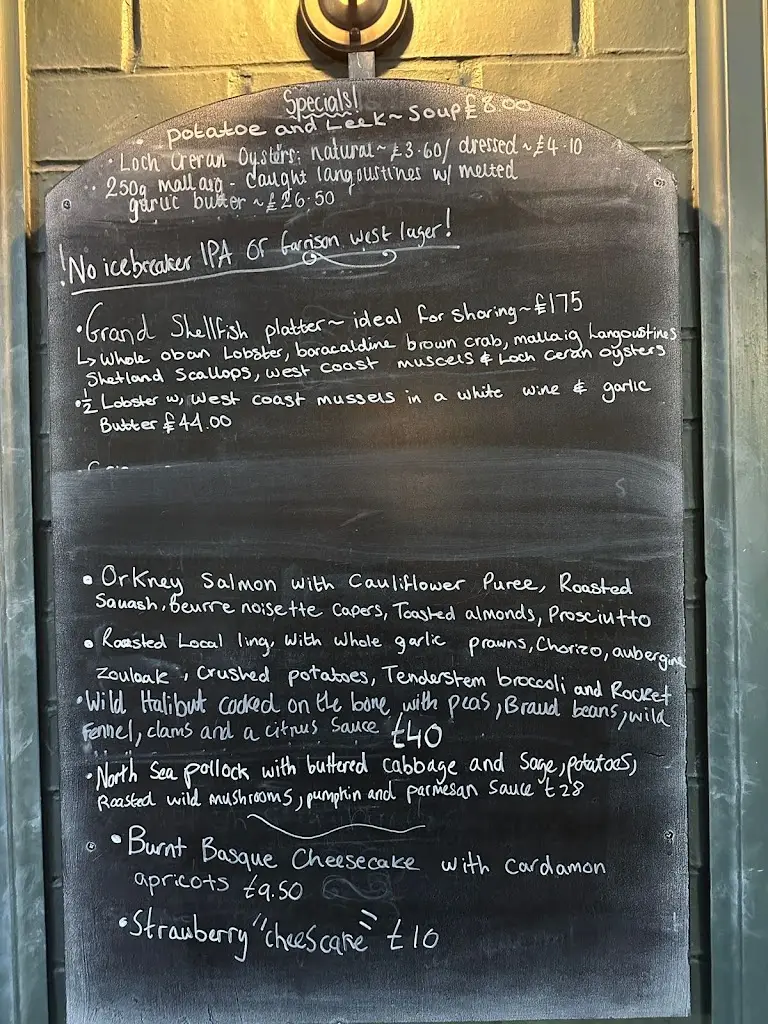 Specials!
• potatoe and Leek ~ Soup £8.00
• Loch Creran Oysters: natural ~ £3.60/ dressed ~ £4.10
• 250g mallaig - caught langoustines w/ melted
garlic butter ~ £26.50
!No icebreaker IPA or Garrison west lager!
• Grand Shellfish platter ~ ideal for sharing ~ £175
↳ Whole oban Lobster, baracaldine brown crab, mallaig Langoustines
Shetland Scallops, west coast muscels & Loch Ceran oysters
• 1/2 Lobster w, West coast mussels in a white wine & garlic
Butter £44.00
• Orkney Salmon with Cauliflower Puree, Roasted
Sauash, beurre noisette capers, Toasted almonds, Prosciutto
• Roasted Local ling, with whole garlic prawns, Chorizo, aubergine
zoulouk, Crushed potatoes, Tenderstem broccoli and Rocket
• Wild Halibut cooked on the bone with peas, Braud beans, wild
fennel, clams and a citrus sauce £40
• North Sea pollock with buttered cabbage and sage, potatoes,
Roasted wild mushrooms, pumpkin and parmesan sauce £28
• Burnt Basque Cheesecake with cardamon
apricots £9.50
• Strawberry "cheescake" £10